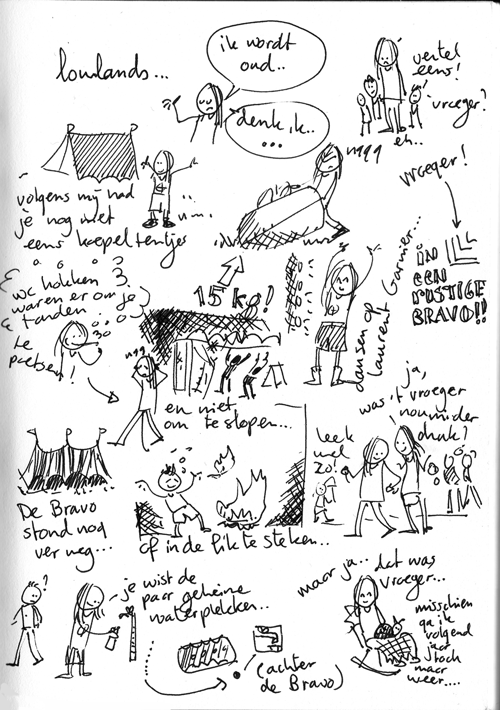 lowlands...
ik wordt
oud..
denk ik..
...
vertel
eens!
vroeger?
eh..
vroeger!
volgens mij had
je nog niet
eens koepeltentjes
15 kg!
dansen op
Laurent Garnier...
in
een
rustige
Bravo!!
wc hokken
waren er om je
tanden
te
poetsen!
en niet
om te slopen...
of in de fik te steken..
ja,
was 't vroeger
nou minder
druk?
leek
wel
zo!
De Bravo
stond nog
ver weg...
je wist de
paar geheime
waterplekken...
(achter
de Bravo)
maar ja.. dat was
vroeger...
misschien
ga ik
volgend
jaar
toch
maar
weer....